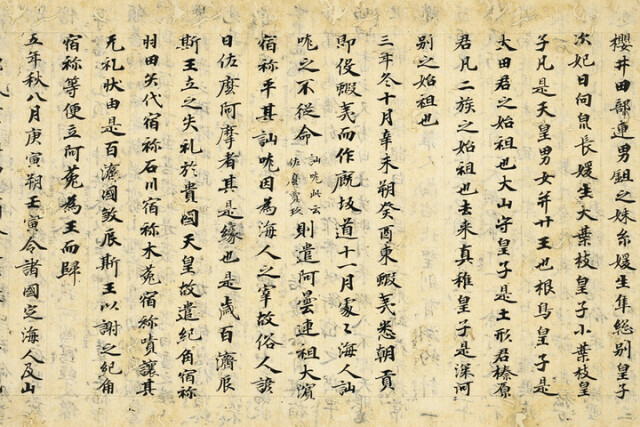 櫻井田部連男鉏之妹糸媛生隼総別皇子
次妃日向泉長媛生大葉枝皇子小葉枝皇
子凡是天皇男女并廿王也根鳥皇子是
大田君之始祖也大山守皇子是土形君榛原
君凡二族之始祖也去来真稚皇子是深河
別之始祖也
三年冬十月辛未朔癸酉東蝦夷悉朝貢
即役蝦夷而作厩坂道十一月處〻海人訕
哤之不從命訕哤此云佐麼賣玖則遣阿曇連祖大濱
宿祢平其訕哤因為海人之宰故俗人諺
曰佐麼阿摩者其是縁也是歳百濟辰
斯王立之失礼於貴國天皇故遣紀角宿祢
羽田矢代宿祢石川宿祢木菟宿祢嘖讓其
无礼状由是百濟國煞辰斯王以謝之紀角
宿祢等便立阿菟為王而歸
五年秋八月庚寅朔壬寅令諸國定海人及山